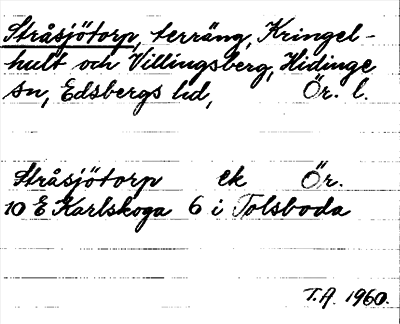 Stråsjötorp, terräng, Kringel-
hult och Villingsberg, Hidinge
sn, Edsbergs hd, Ör. l.
Stråsjötorp ek Ör.
10 E Karlskoga 6 i Tolsboda
T.A. 1960.